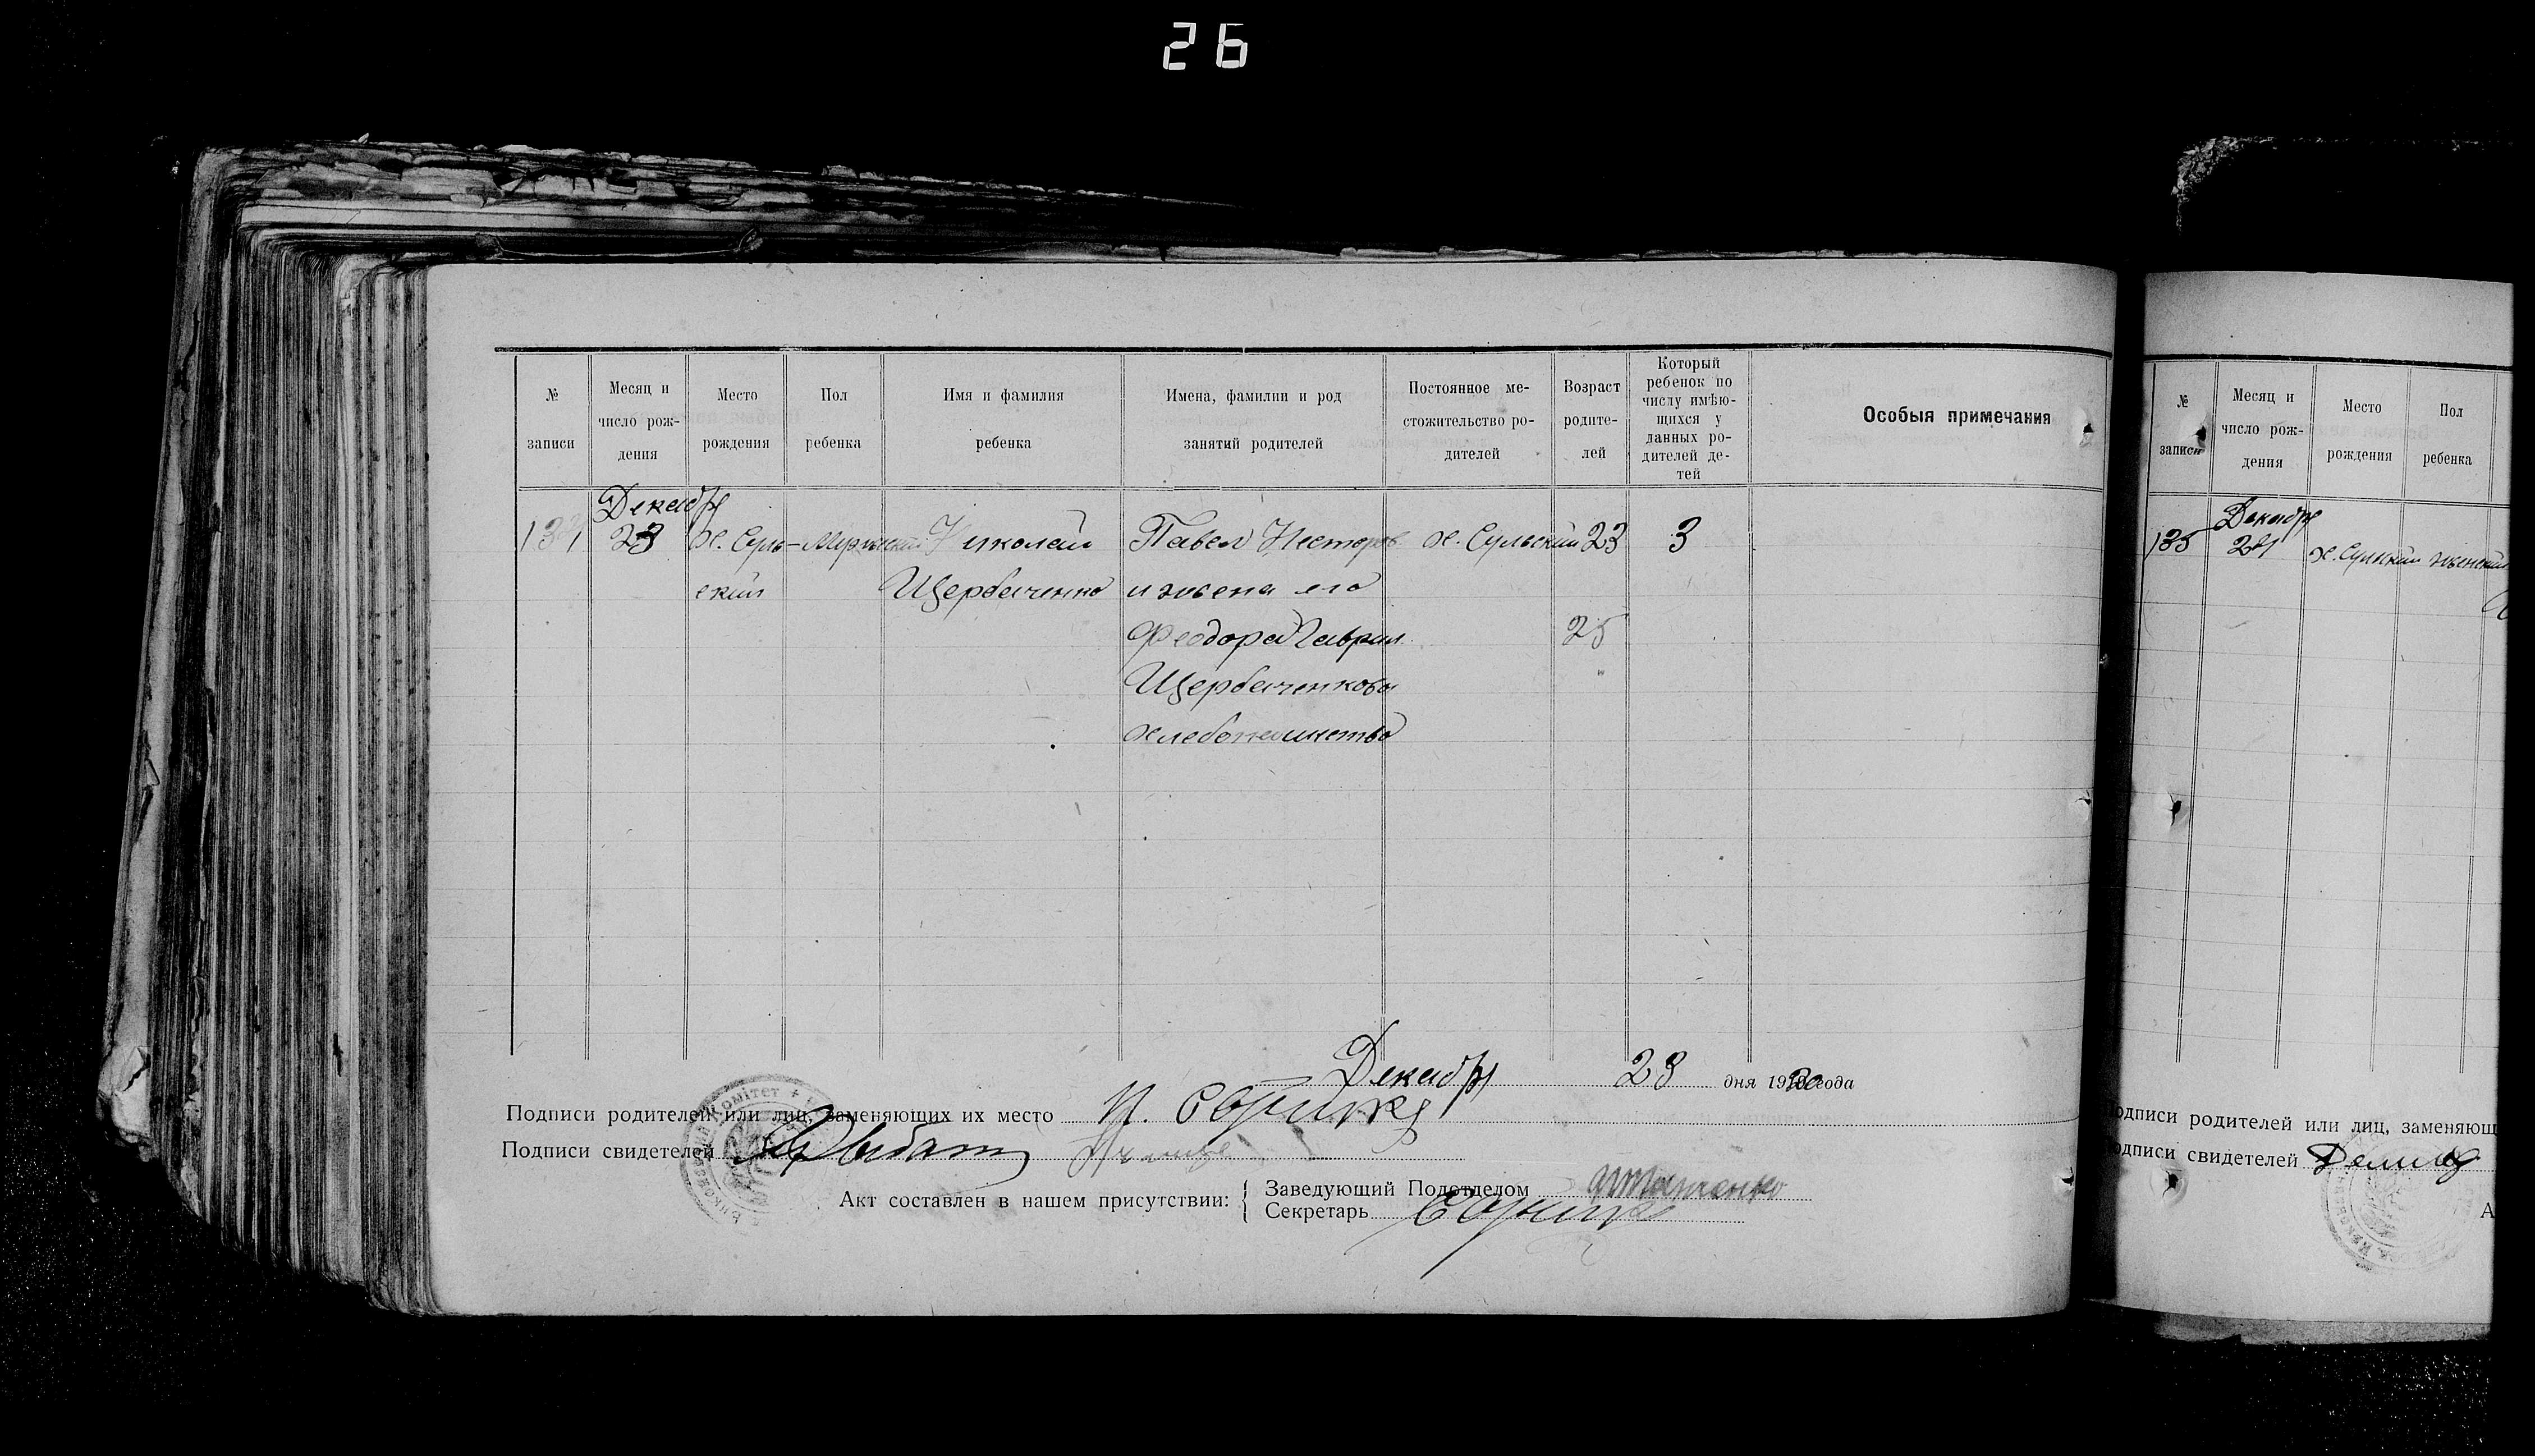 26
№ записи
Месяц и число рождения
Место рождения
Пол ребенка
Имя и фамилия ребенка
Имена, фамилии и род занятий родителей
Постоянное местожительство родителей
Возраст родителей
Который ребенок по числу имѣющихся у данных родителей детей
Особыя примечания
Декабр
134 23 х. Суль- Мужеский Николай Павел Несторов х. Сульский 23 3
ский Щербаченко и жена его
Феодора Гаврил. 25
Щербаченковы
хлебопашество
Декабр 23 дня 1920 года
Подписи родителей или лиц, заменяющих их место
Подписи свидетелей
Акт составлен в нашем присутствии:
Заведующий Подотделом
Секретарь
№ записи
Месяц и число рождения
Место рождения
Пол ребенка
Декабр
135 24 х. Сульский женский
одписи родителей или лиц, заменяющ
одписи свидетелей
А